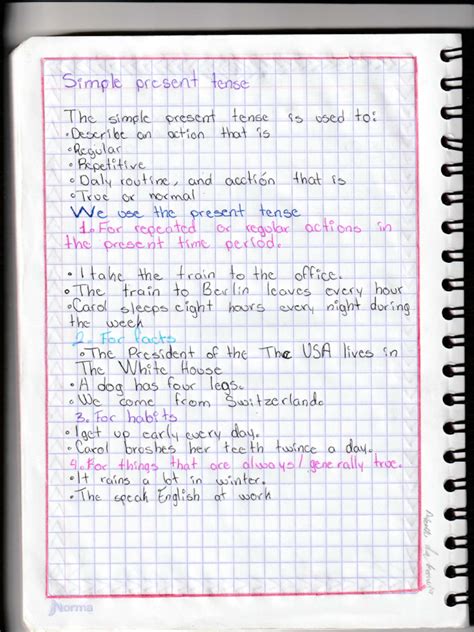 Simple present tense
The simple present tense is used to:
• Describe an action that is
• Regular
• Repetitive
• Daly routine, and acction that is
• True or normal
We use the present tense
1. For repeated or regular actions in
the present time period.
• I take the train to the office.
• The train to Berlin leaves every hour
• Carol sleeps eight hours every night during
the week
2. For facts
• The President of the The USA lives in
The White House
• A dog has four legs.
• We come from Switzerland.
3. For habits
• I get up early every day.
• Carol broshes her teeth twince a day.
4. For things that are always/generally true.
• It rains a lot in winter.
• The speak English at work
Norma